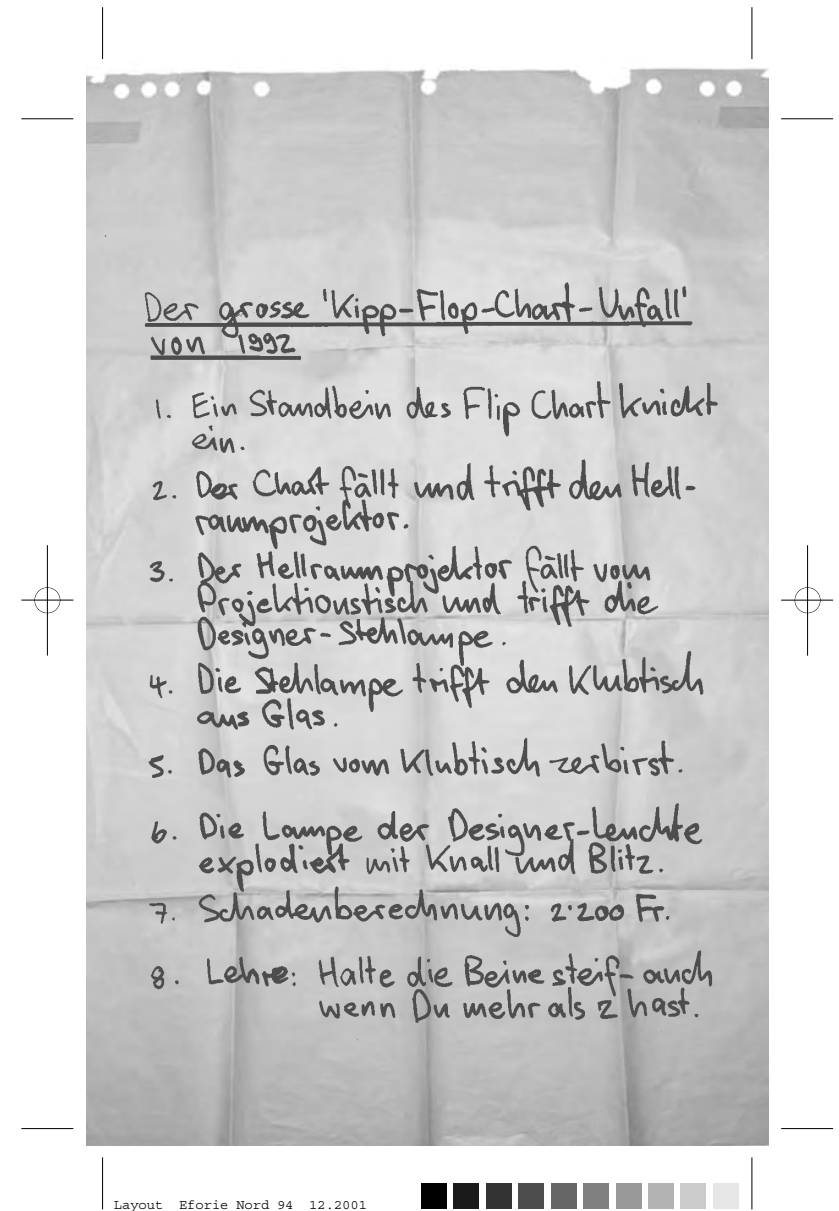 Der grosse 'Kipp-Flop-Chart-Unfall'
von 1992
1. Ein Standbein des Flip Chart knickt
ein.
2. Der Chart fällt und trifft den Hell-
raumprojektor.
3. Der Hellraumprojektor fällt vom
Projektionstisch und trifft die
Designer-Stehlampe.
4. Die Stehlampe trifft den Klubtisch
aus Glas.
5. Das Glas vom Klubtisch zerbirst.
6. Die Lampe der Designer-Leuchte
explodiert mit Knall und Blitz.
7. Schadenberechnung: 2'200 Fr.
8. Lehre: Halte die Beine steif- auch
wenn Du mehr als 2 hast.
Layout Eforie Nord 94 12.2001